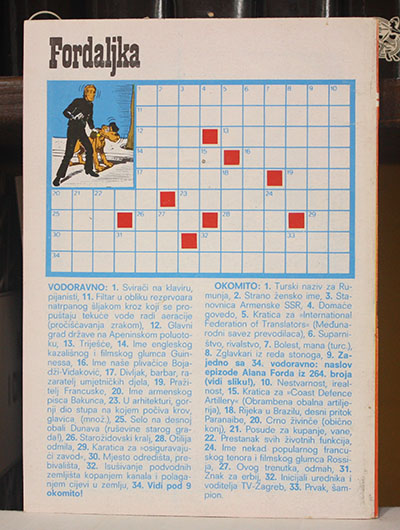 Fordaljka
1 2 3 4 5 6 7 8 9 10
11
12 13
14 15 16
17 18 19
20 21 22 23 24
25 26 27 28 29
30 31 32 33
34
VODORAVNO: 1. Svirači na klaviru,
pijanisti, 11. Filtar u obliku rezervoara
natrpanog šljakom kroz koji se pro-
puštaju tekuće vode radi aeracije
(pročišćavanja zrakom), 12. Glavni
grad države na Apeninskom poluoto-
ku, 13. Triješće, 14. Ime engleskog
kazališnog i filmskog glumca Guin-
nessa, 16. Ime naše pjevačice Boja-
dži-Vidaković, 17. Divljak, barbar, ra-
zaratelj umjetničkih djela, 19. Praži-
telj Francuske, 20. Ime armenskog
pisca Bakunca, 23. U arhitekturi, gor-
nji dio stupa na kojem počiva krov,
glavica (množ.), 25. Selo na desnoj
obali Dunava (ruševine starog gra-
da!), 26. Starožidovski kralj, 28. Otilija
odmila, 29. Karatica za »osiguravaju-
ći zavod«, 30. Mjesto odredišta, pre-
bivališta, 32. Isušivanje podvodnih
zemljišta kopanjem kanala i polaga-
njem cijevi u zemlju, 34. Vidi pod 9
okomito!
OKOMITO: 1. Turski naziv za Ru-
munja, 2. Strano žensko ime, 3. Sta-
novnica Armenske SSR, 4. Domaće
govedo, 5. Kratica za »International
Federation of Translators« (Međuna-
rodni savez prevodilaca), 6. Suparni-
štvo, rivalstvo, 7. Bolest, mana (turc.),
8. Zglavkari iz reda stonoga, 9. Za-
jedno sa 34. vodoravno: naslov
epizode Alana Forda iz 264. broja
(vidi sliku!), 10. Nestvarnost, ireal-
nost, 15. Kratica za »Coast Defence
Artillery« (Obrambena obalna artilje-
rija), 18. Rijeka u Brazilu, desni pritok
Paranaibe, 20. Crno živinče (obično
konj), 21. Posude za kupanje, vane,
22. Prestanak svih životnih funkcija,
24. Ime nekad popularnog francu-
skog tenora i filmskog glumca Rossi-
ja, 27. Ovog trenutka, odmah, 31.
Znak za erbij, 32. Inicijali urednika i
voditelja TV-Zagreb, 33. Prvak, šam-
pion.